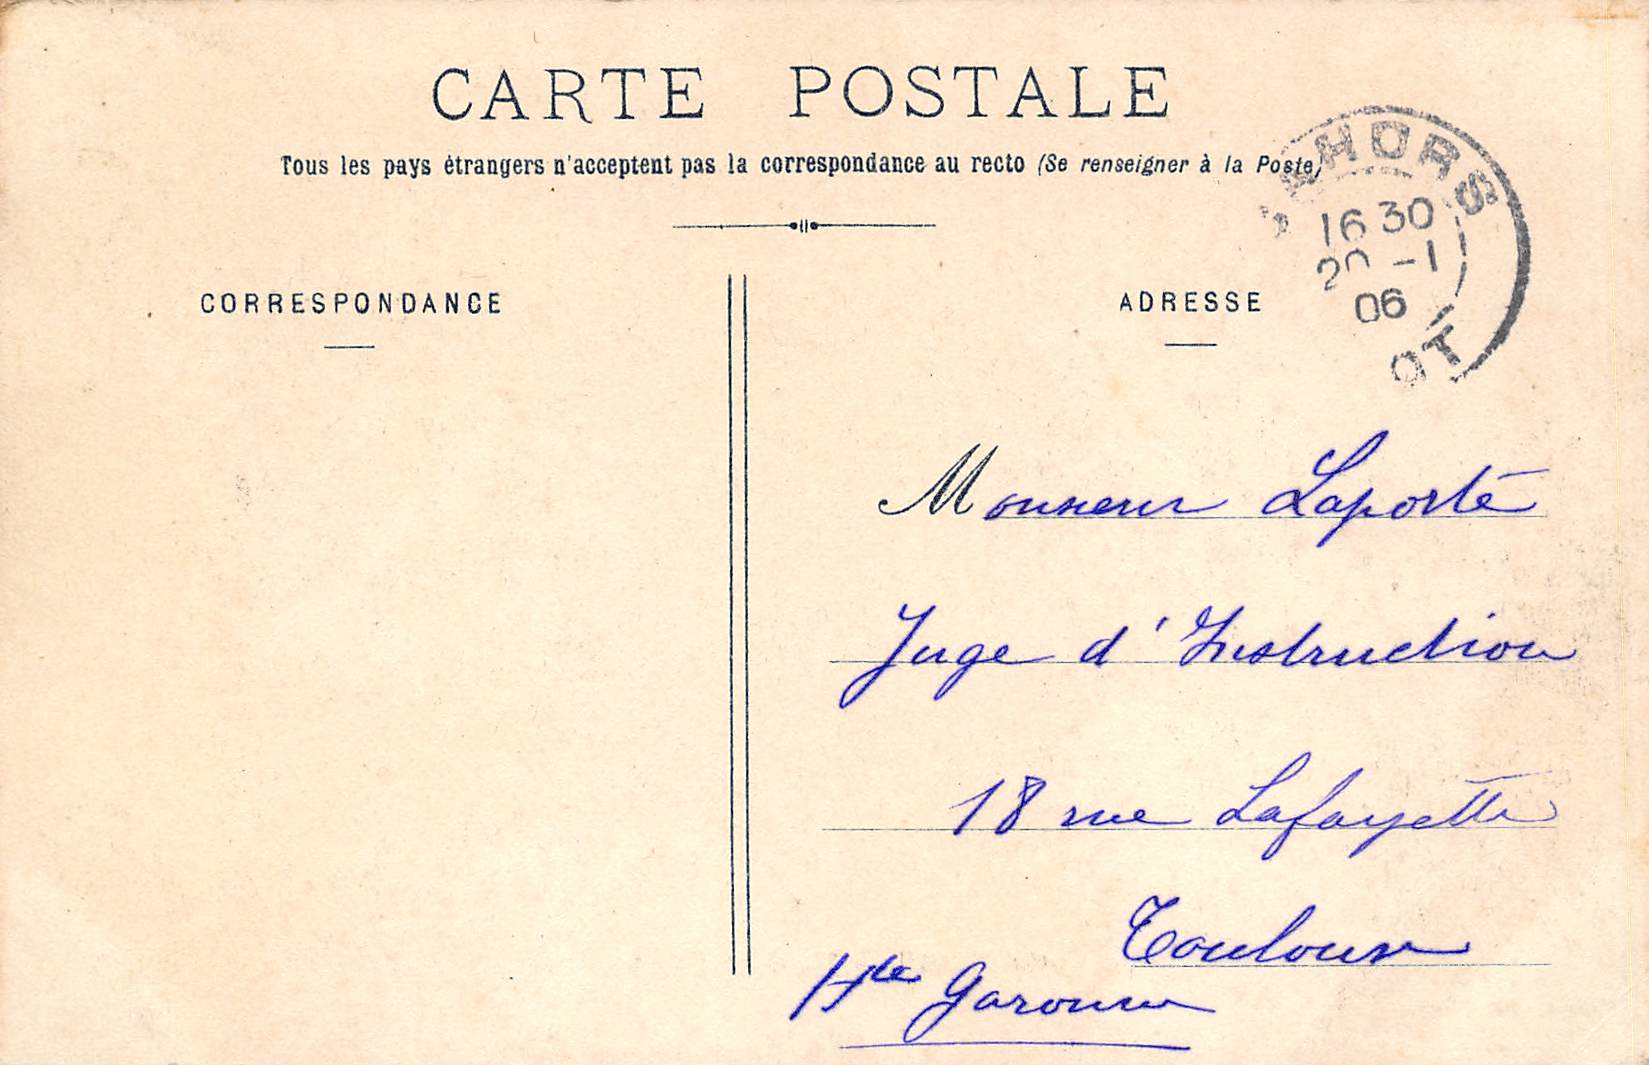 CARTE POSTALE
Tous les pays étrangers n'acceptent pas la correspondance au recto (Se renseigner à la Poste)
CAHORS
16 30
20 -1
06
LOT
CORRESPONDANCE
ADRESSE
Monsieur Laporte
Juge d'Instruction
18 rue Lafayette
Toulouse
Hte Garonne